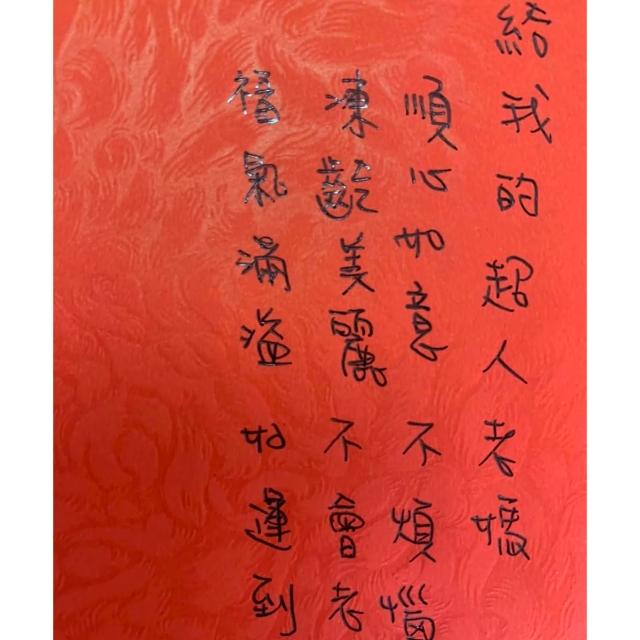 給我的超人老媽
順心如意不煩惱
凍齡美麗不會老
福氣滿溢好運到